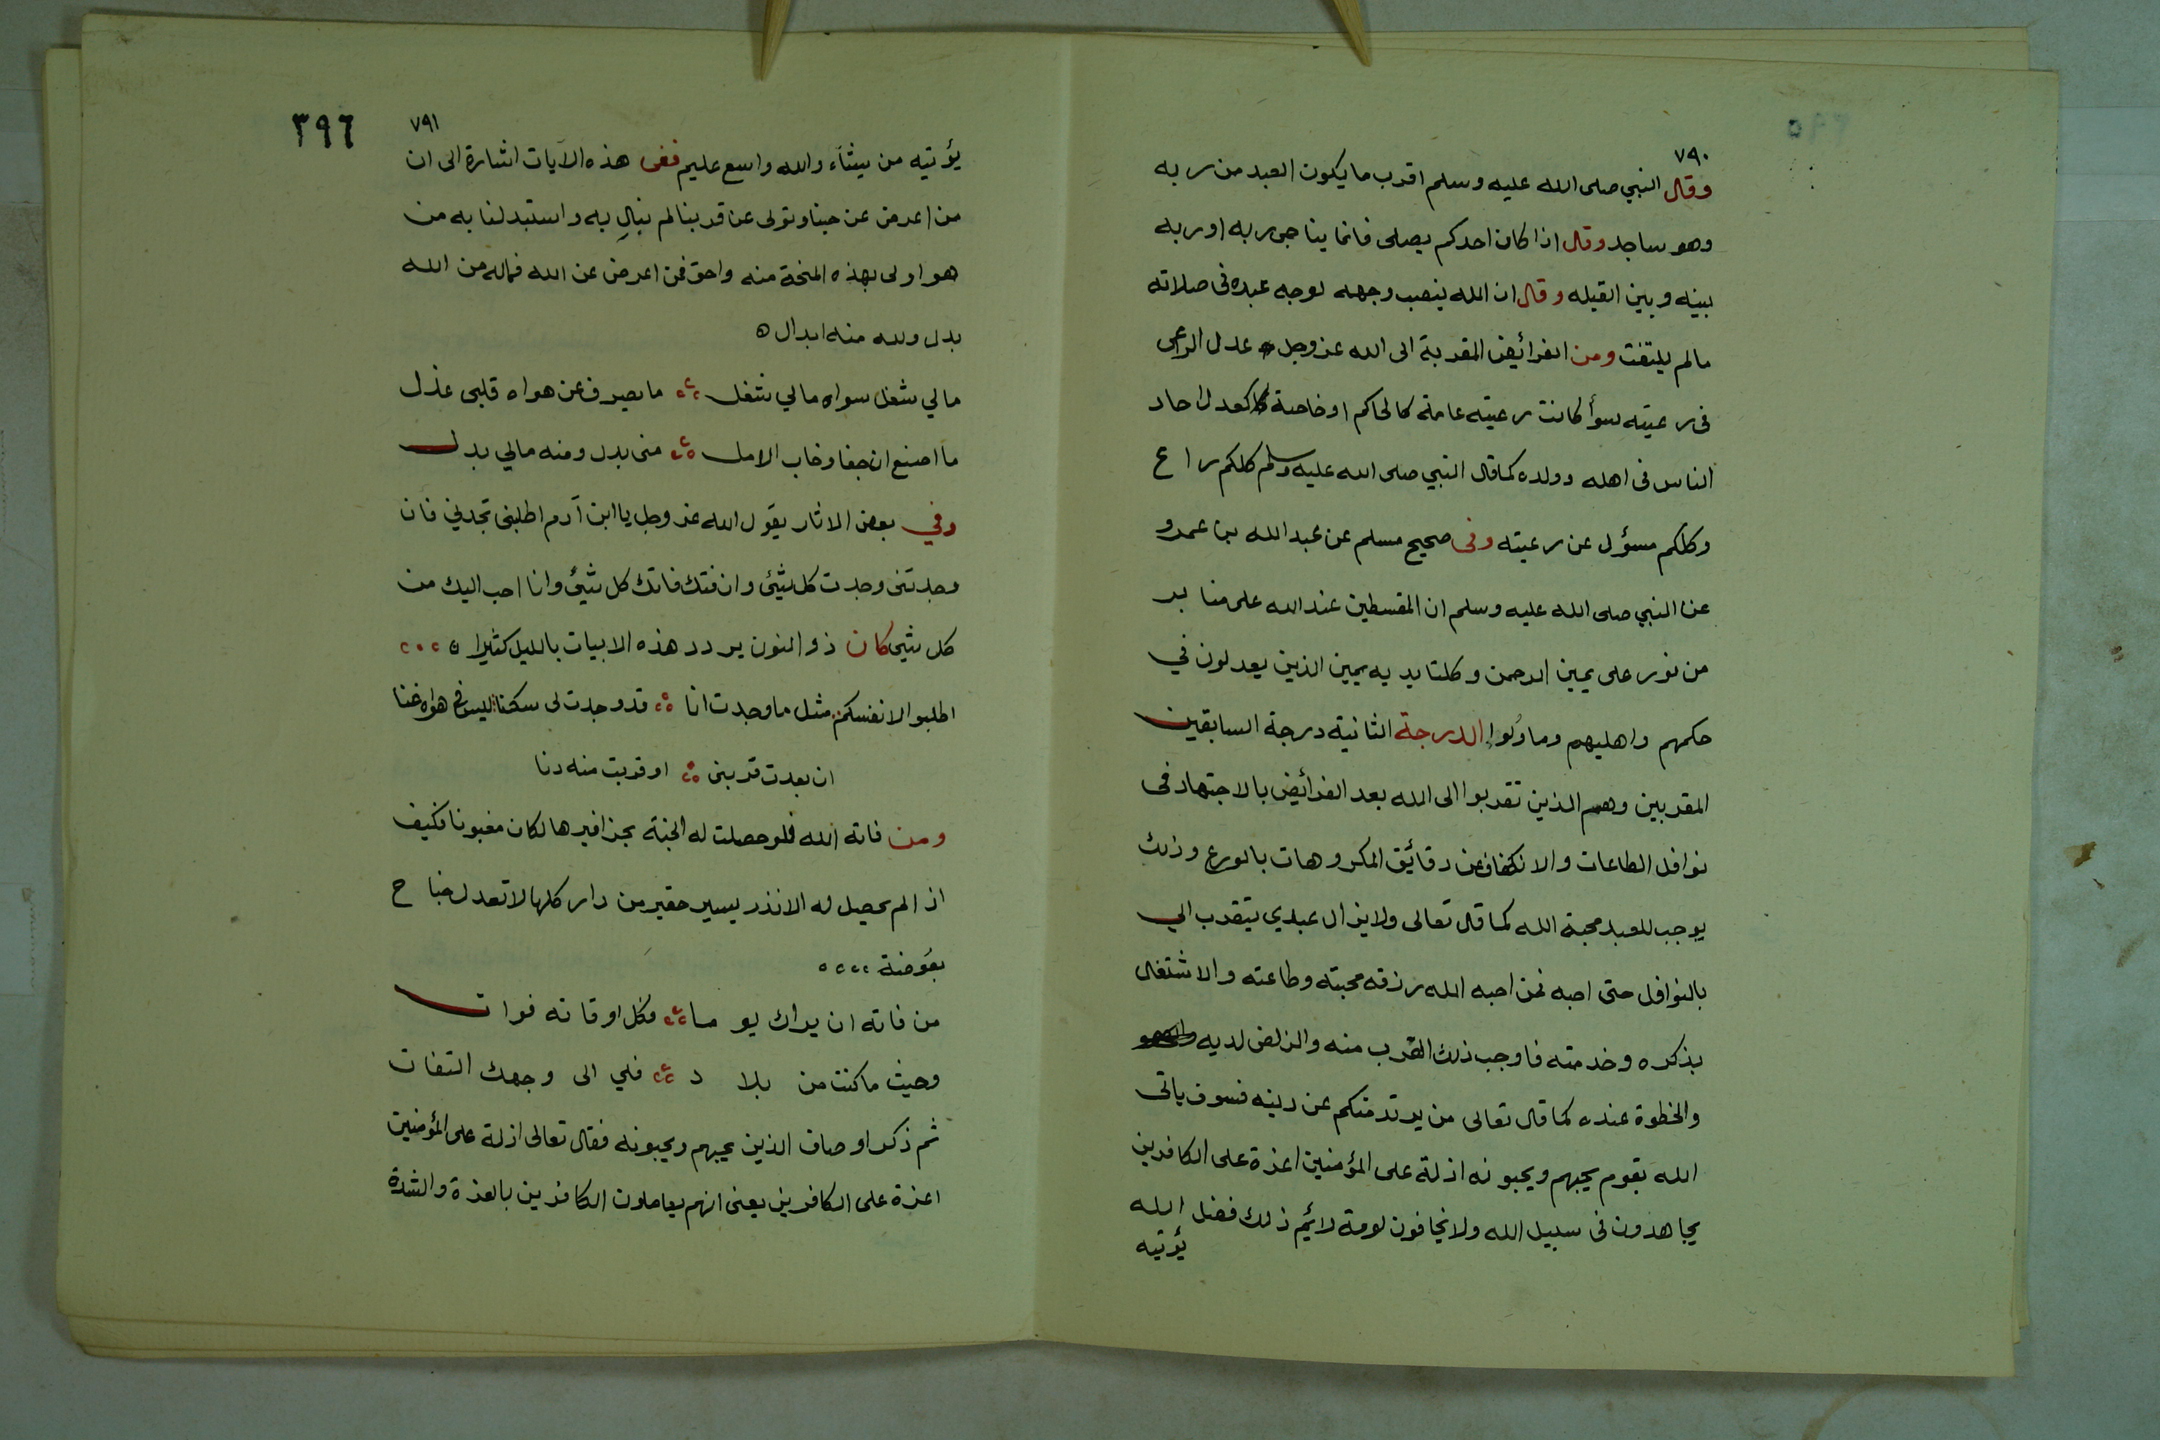 ٧٩٠
وقال النبي صلى الله عليه وسلم اقرب ما يكون العبد من ربه
وهو ساجد وقال اذا كان احدكم يصلى فانما يناجى ربه او ربه
بينه وبين القبله وقال ان الله ينصب وجهه لوجه عبده فى صلاته
مالم يلتفت ومن الفرائض المقربة الى الله عز وجل عدل الراعى
فى رعيته سوأ كانت رعيته عامة كالحاكم او خاصة كعدل احاد
الناس فى اهله وولده كما قال النبي صلى الله عليه وسلم كلكم راع
وكلكم مسؤل عن رعيته وفى صحيح مسلم عن عبد الله بن عمرو
عن النبي صلى الله عليه وسلم ان المقسطين عند الله على منابر
من نور على يمين الرحمن وكلتا يديه يمين الذين يعدلون في
حكمهم واهليهم وما ولوا الدرجة الثانية درجة السابقين
المقربين وهم الذين تقربوا الى الله بعد الفرائض بالاجتهاد فى
نوافل الطاعات والانكفاف عن دقائق المكروهات بالورع وذلك
يوجب للعبد محبة الله كما قال تعالى ولا يزال عبدي يتقرب الي
بالنوافل حتى احبه فمن احبه الله رزقه محبته وطاعته والاشتغال
بذكره وخدمته فاوجب ذلك القرب منه والزلفى لديه
والحظوة عنده كما قال تعالى من يرتد منكم عن دينه فسوف ياتى
الله بقوم يحبهم ويحبونه اذلة على المؤمنين اعزة على الكافرين
يجاهدون فى سبيل الله ولا يخافون لومة لائم ذلك فضل الله
يؤتيه
٧٩١
٣٩٦
يؤتيه من يشآء والله واسع عليم ففى هذه الآيات اشارة الى ان
من اعرض عن حبنا وتولى عن قربنا لم نبالِ به واستبدلنا به من
هو اولى بهذه المنحة منه واحق فمن اعرض عن الله فماله من الله
بدل ولله منه ابدال ه
مالي شغل سواه مالي شغل ما يصرف عن هواه قلبى عذل
ما اصنع ان جفا وخاب الامل منى بدل ومنه مالي بدل
وفي بعض الاثار يقول الله عز وجل يا ابن آدم اطلبنى تجدني فان
وجدتنى وجدت كل شيئ وان فتك فاتك كل شيئ وانا احب اليك من
كل شيئ كان ذو النون يردد هذه الابيات بالليل كثيرا ه
اطلبوا لانفسكم مثل ما وجدت انا قد وجدت لى سكنا ليس فى هواه عنا
ان بعدت قربنى او قربت منه دنا
ومن فاته الله فلو حصلت له الجنة بحذافيرها لكان مغبونا فكيف
اذا لم يحصل له الا نذر يسير حقير من دار كلها لا تعدل جناح
بعوضة
من فاته ان يراك يوما فكل اوقاته فوات
وحيث ما كنت من بلاد فلي الى وجهك التفات
ثم ذكر اوصاف الذين يحبهم ويحبونه فقال تعالى اذلة على المؤمنين
اعزة على الكافرين يعنى انهم يعاملون الكافرين بالعزة والشدة